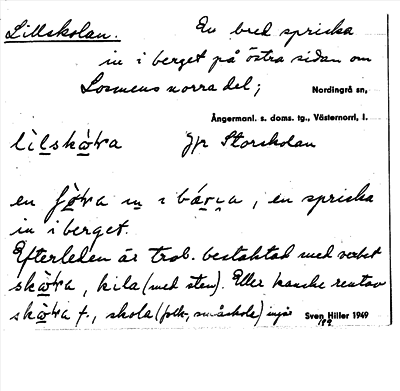 Lillskolan.
En bred spricka
in i berget på östra sidan om
Losmens norra del;
Nordingrå sn,
Ångermanl. s. doms. tg., Västernorrl, l.
jfr Storskolan
en in i , en spricka
in i berget.
Efterleden är trol. besläktad med verbet
, kila (med sten). Eller kanske rentav
f., skola (folk-, småskola)
Sven Hiller 1949